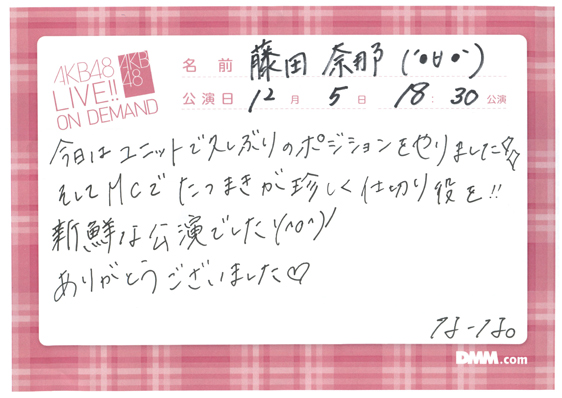 AKB48
LIVE!!
ON DEMAND
AKB
48
名前 藤田 奈那 (´●∀●`)
公演日 12月 5日 18:30公演
今日はユニットで久しぶりのポジションをやりました☆☆
そしてMCでたつまきが珍しく仕切り役を!!
新鮮な公演でした\(^o^)/
ありがとうございました♡
なーな。
DMM.com